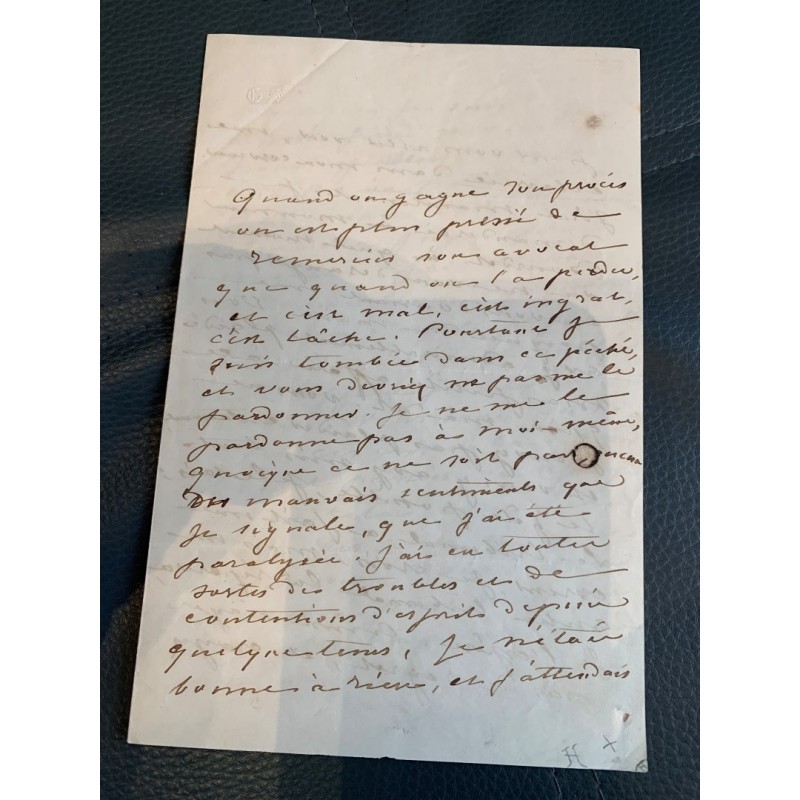 Quand on gagne son procès
on est plus pressé de
remercier son avocat
que quand on l'a perdu,
et c'est mal, c'est ingrat,
c'est lâche. Pourtant je
suis tombée dans ce péché,
et vous devriez ne pas me le
pardonner. Je ne me le
pardonne pas à moi-même,
quoique ce ne soit par aucun
des mauvais sentiments que
je signale, que j'ai été
paralysée. J'ai eu toutes
sortes des troubles et de
contentions d'esprit depuis
quelque tems, je n'étais
bonne à rien, et j'attendais
H X